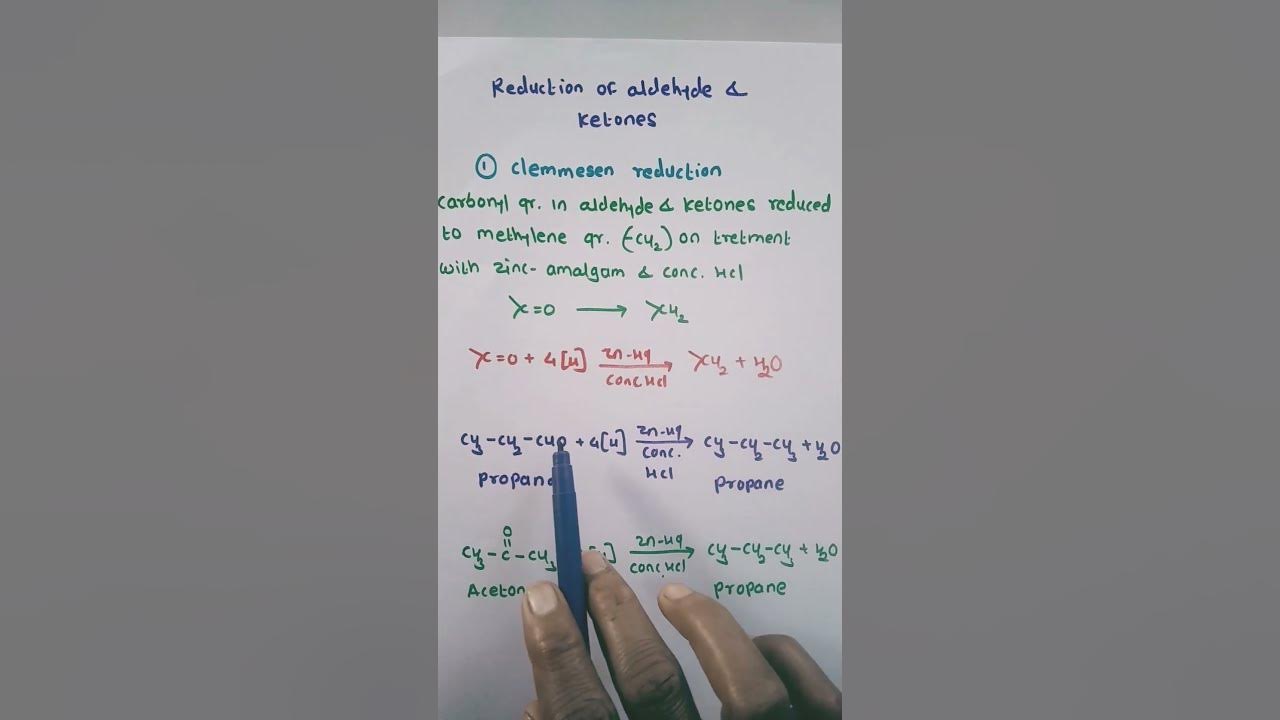 Reduction of aldehyde &
Ketones
① clemmesen reduction
carbonyl gr. in aldehyde & ketones reduced
to methylene gr. (-CH₂) on tretment
with zinc- amalgam & conc. HCl
>C=O ⟶ >CH₂
>C=O + 4[H] Zn-Hg / Conc HCl ⟶ >CH₂ + H₂O
CH₃-CH₂-CHO + 4[H] Zn-Hg / Conc. HCl ⟶ CH₃-CH₂-CH₃ + H₂O
Propane
CH₃-C(=O)-CH₃ [H] Zn-Hg / Conc. HCl ⟶ CH₃-CH₂-CH₃ + H₂O
Propane